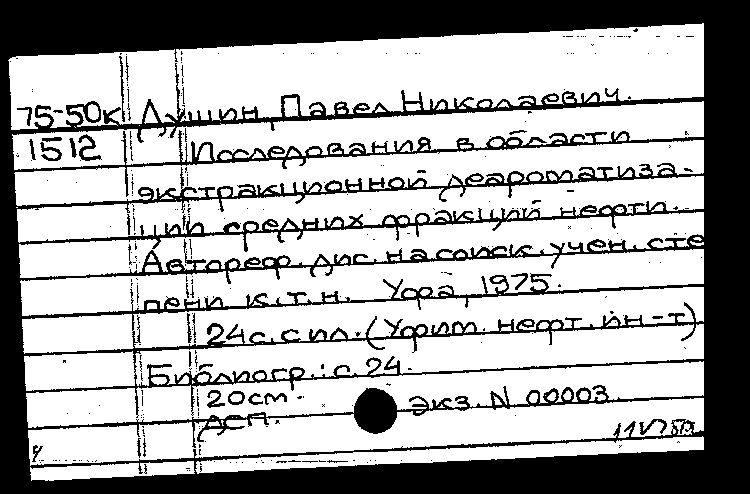 75-50к Душин, Павел Николаевич.
1512 Исследования в области
экстракционной деароматиза-
ции средних фракций нефти.
Автореф. дис. на соиск. учен. сте
пени к.т.н. Уфа, 1975.
24с. с ил. (Уфим. нефт. ин-т)
Библиогр.: с. 24.
20см.
ДСП. Экз. N 00003.